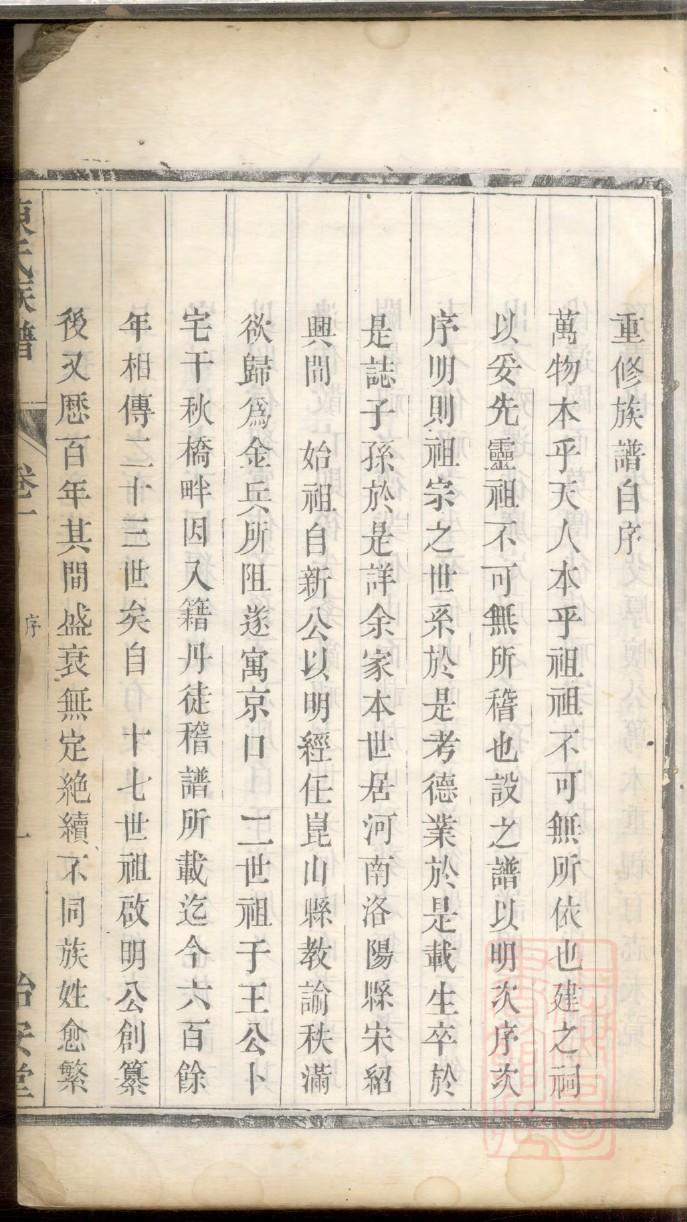 重修族譜自序
萬物本乎天人本乎祖祖不可無所依也建之祠
以妥先靈祖不可無所稽也設之譜以明次序次
序明則祖宗之世系於是考德業於是載生卒於
是誌子孫於是詳余家本世居河南洛陽縣宋紹
興間　始祖自新公以明經任崑山縣教諭秩滿
欲歸爲金兵所阻遂寓京口　二世祖于王公卜
宅干秋橋畔因入籍丹徒稽譜所載迄今六百餘
年相傳二十三世矣自　十七世祖啟明公創纂
後又歷百年其間盛衰無定絶續不同族姓愈繁
氏族譜
卷一
序
一
怡安堂